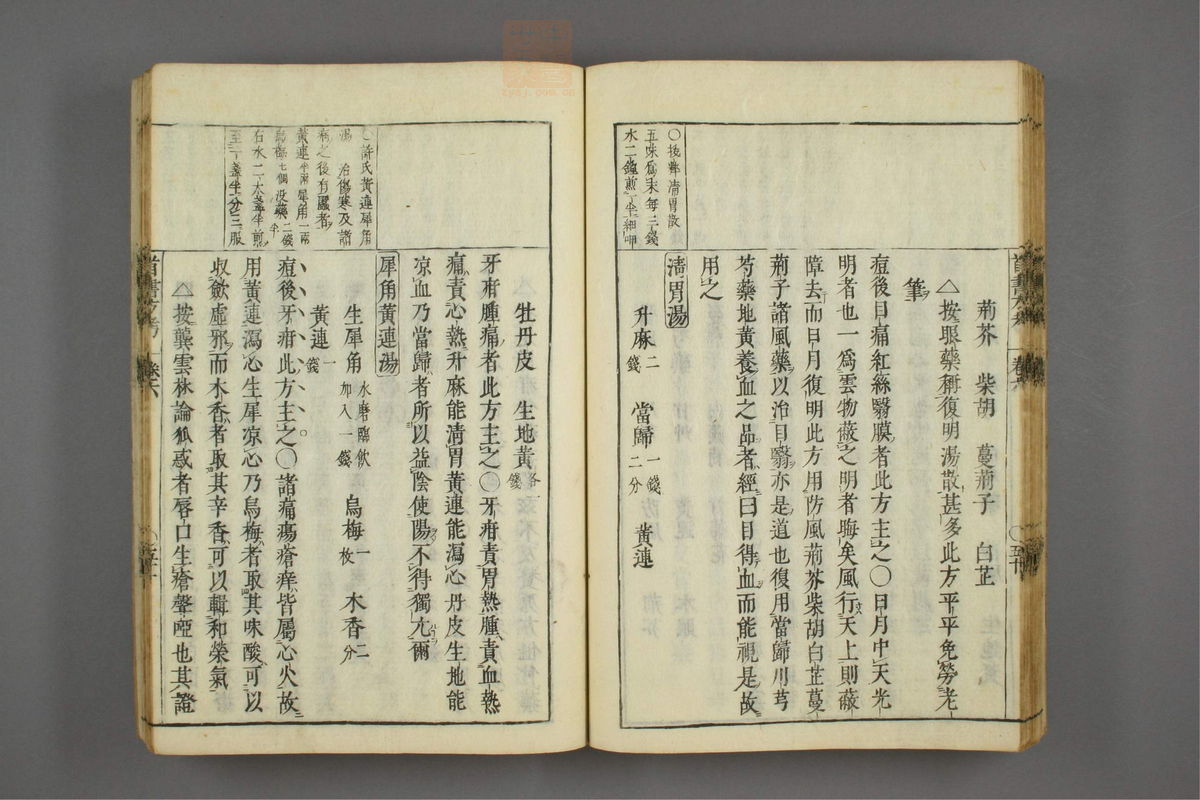 ○按犨清胃散
五味爲末每三錢
水二鐘煎一半細呷
荊芥　柴胡　蔓荊子　白芷
△按眼藥種復明湯散甚多此方平平免勞老
筆
痘後目痛紅絲翳膜者此方主之○日月中天光
明者也一爲雲物蔽之明者晦矣風行天上則蔽
障去而日月復明此方用防風荊芥柴胡白芷蔓
荊子諸風藥以治目翳亦是道也復用當歸川芎
芍藥地黃養血之品者經曰目得血而能視是故
用之
清胃湯
升麻二錢　當歸一錢二分　黃連
○許氏黃連犀角
湯　治傷寒及諸
病之後有䘌者
黃連半兩犀角一兩
烏梅七個没藥二錢半
右水二大盞半煎
至一盞半分三服
牡丹皮　生地黃各錢
牙疳腫痛者此方主之○牙疳責胃熱腫責血熱
痛責心熱升麻能清胃黃連能瀉心丹皮生地能
凉血乃當歸者所以益陰使陽不得獨亢爾
犀角黃連湯
生犀角水磨臨飲加入一錢　烏梅一枚　木香二分
黃連一錢
痘後牙疳此方主之○諸痛瘍瘡痒皆屬心火故
用黃連瀉心生犀凉心乃烏梅者取其味酸可以
収斂虛邪而木香者取其辛香可以輯和榮氣
△按龔雲林論狐惑者唇口生瘡聲啞也其證